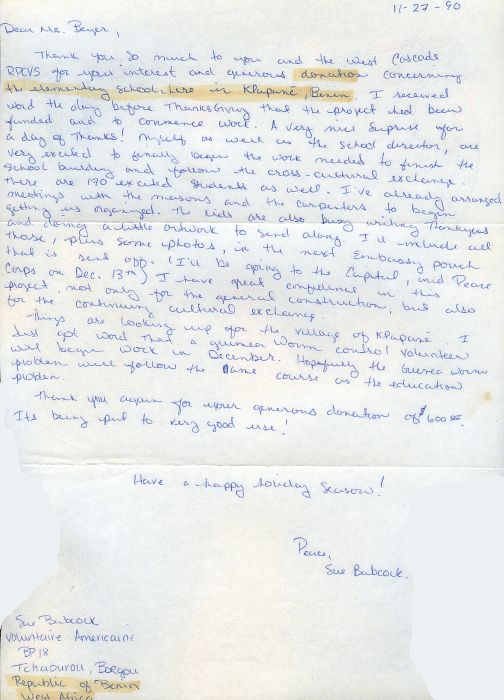 11-27-90
Dear Mr. Beyer,
Thank you so much to you and the West Cascade
RPCVS for your interest and generous donation concerning
the elementary school here in Kpapané, Benin. I received
word the day before Thanksgiving that the project had been
funded and to commence work. A very nice suprise for
a day of thanks! Myself as well as the school director, are
very excited to finally begin the work needed to finish the
school building and follow the cross-cultural exchange.
There are 170 excited students as well. I've already arranged
meetings with the masons and the carpenters to begin
getting us organized. The kids are also busy writing Thankyous
and doing a little artwork to send along. I'll include all
those, plus some photos, in the next Embassy pouch
that is send off. (I'll be going to the Capital, and Peace
Corps on Dec. 13th) I have great confidence in this
project, not only for the general construction, but also
for the continuing cultural exchange.
Things are looking up for the village of Kpapané. I
Just got word that a guinea worm control Volunteer
will begin work in December. Hopefully the Guinea worm
problem will follow the same course as the education
problem.
Thank you again for your generous donation of $600.00.
Its being put to very good use!
Have a happy holiday season!
Peace,
Sue Babcock.
Sue Babcock
Voluntaire Americaine
BP 18
Tchaourou, Borgou
Republic of Benin
West Africa